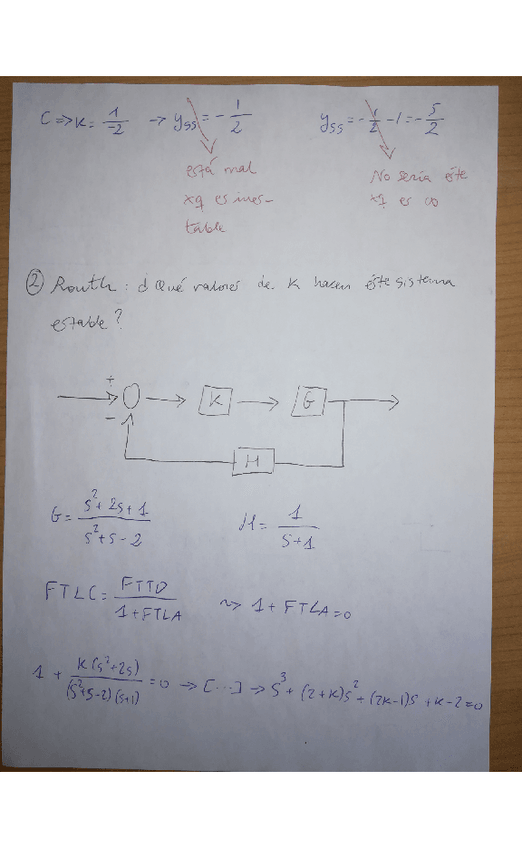 C => K = 1/-2 → yss = -1/2 yss = -1/2 -1 = -5/2
está mal No sería éste
xq es ines- xq es ∞
table
② Routh: ¿Qué valores de K hacen éste sistema
estable?
+ K G
- H
G = s²+2s+1/s²+s-2 H = 1/s+1
FTLC = FTTD/1+FTLA ~> 1+FTLA=0
1 + K(s²+2s)/(s²+s-2)(s+1) = 0 → [...] → s³+(2+K)s²+(2K-1)s+K-2=0